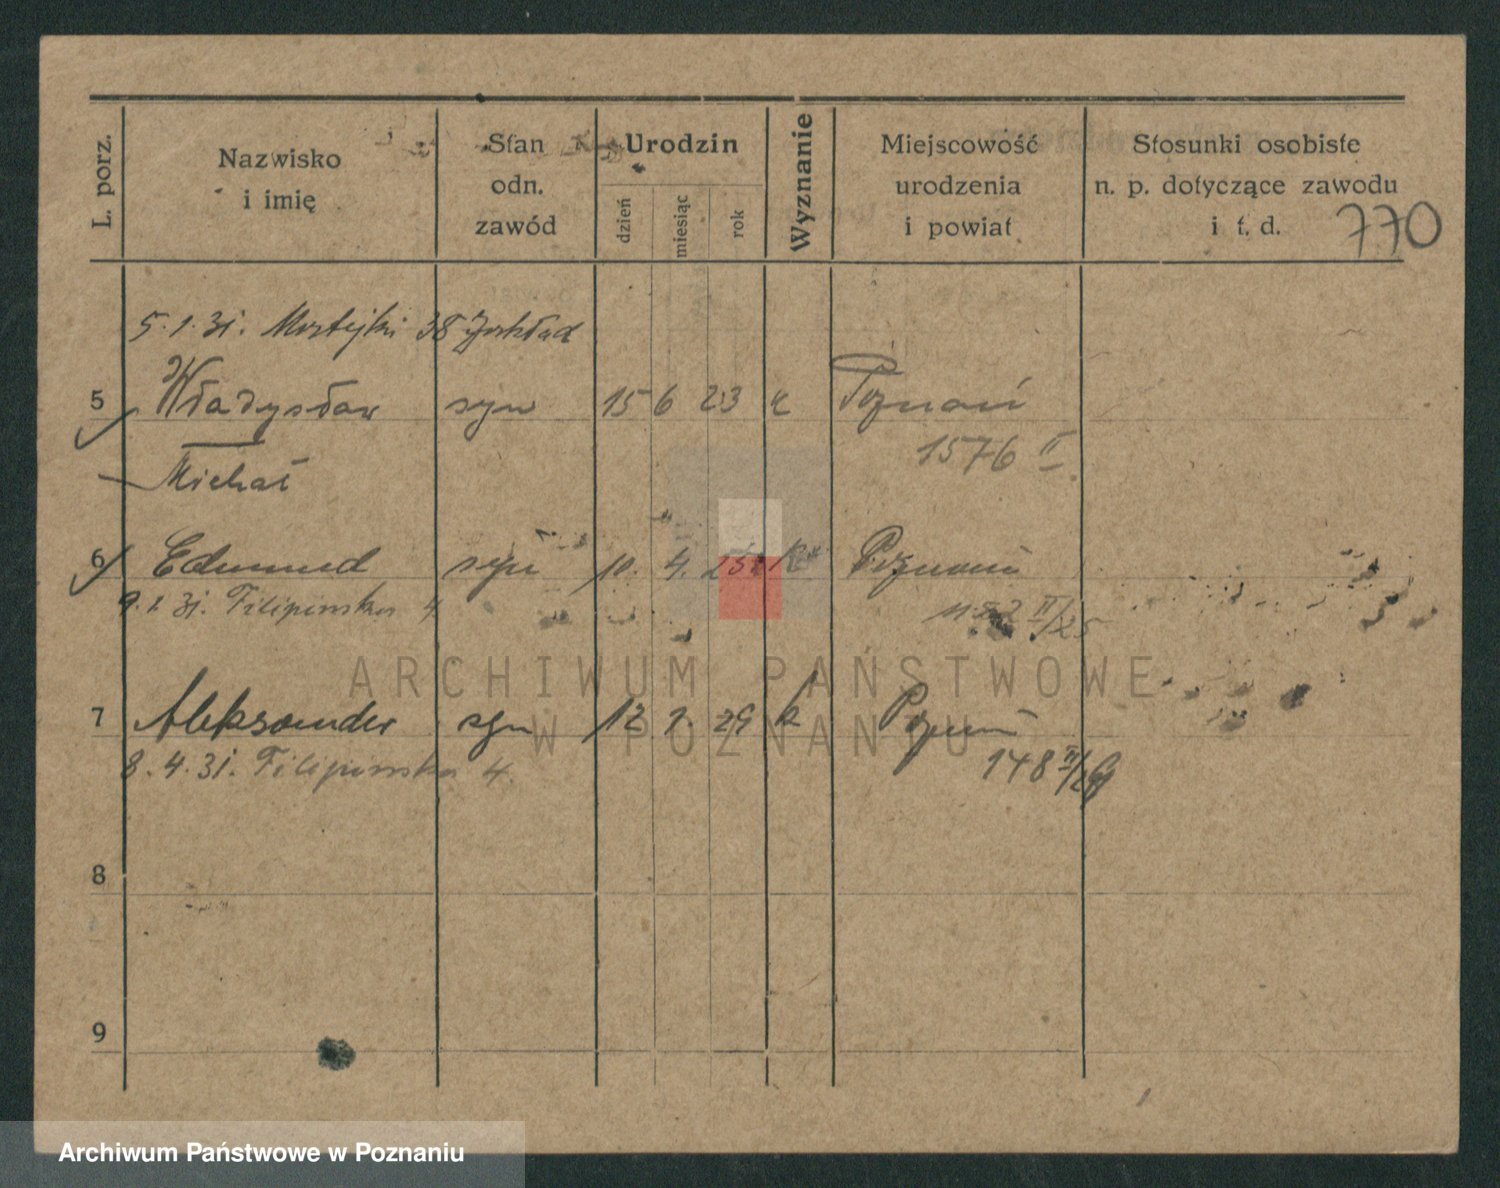 L. porz.
Nazwisko
i imię
Stan
odn.
zawód
Urodzin
dzień
miesiąc
rok
Wyznanie
Miejscowość
urodzenia
i powiat
Stosunki osobiste
n. p. dotyczące zawodu
i t. d.
770
5.1.31. 38
5 Władysław syn 15 6 23 k Poznań
1576 II
Michał
6 Edmund syn 10. 4. 25 k Poznań
9.1.31. Filipińska 4
1152 II/25
7 Aleksander syn 12 29 k Poznań
8.4.31. Filipińska 4.
148 II/29
8
9
ARCHIWUM PAŃSTWOWE
W POZNANIU
Archiwum Państwowe w Poznaniu